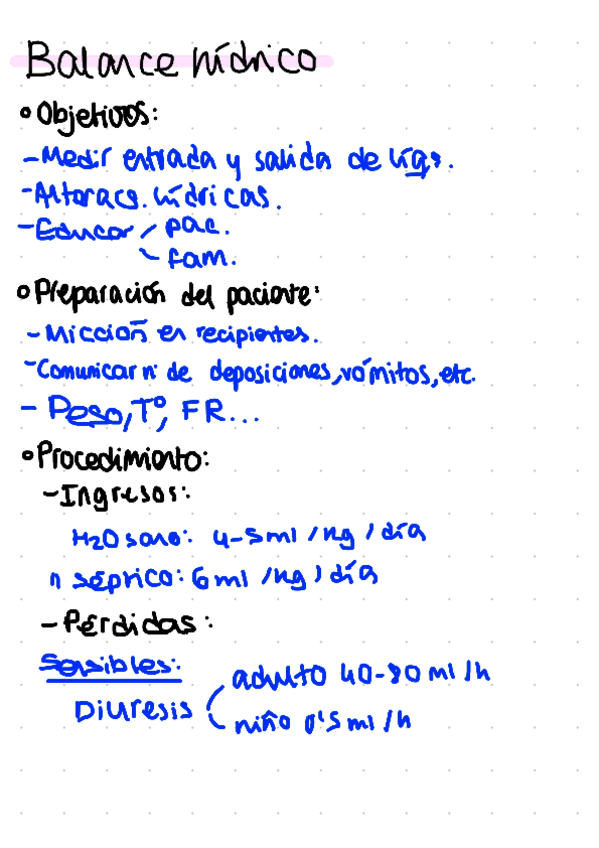 Balance hídrico
• Objetivos:
- Medir entrada y salida de líqs.
- Alteracs. hídricas.
- Educar pac.
fam.
• Preparación del paciente:
- Micción en recipientes.
- Comunicar nº de deposiciones, vómitos, etc.
- Peso, Tº, FR...
• Procedimiento:
- Ingresos:
H2O sano: 4-5ml /kg / día
n séptico: 6ml /kg / día
- Pérdidas:
Sensibles:
Diuresis
adulto 40-80 ml /h
niño 0'5 ml /h